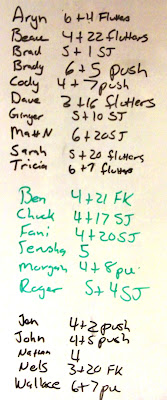 Aryn 6+4 Flutters
Beau 4+22 flutters
Brad 5+1 SJ
Brady 6+5 push
Cody 4+7 push
Dave 3+16 flutters
Ginger 5+10 SJ
Matt N 6+20 SJ
Sarah 5+20 flutters
Tricia 6+7 flutters
Ben 4+21 FK
Chuck 4+17 SJ
Fani 4+20 SJ
5
Morgan 4+8 pu.
Roger 5+4 SJ
Jen 4+2 push
John 4+5 push
Nathan 4
Nels 3+20 FK
Wallace 6+7 pu